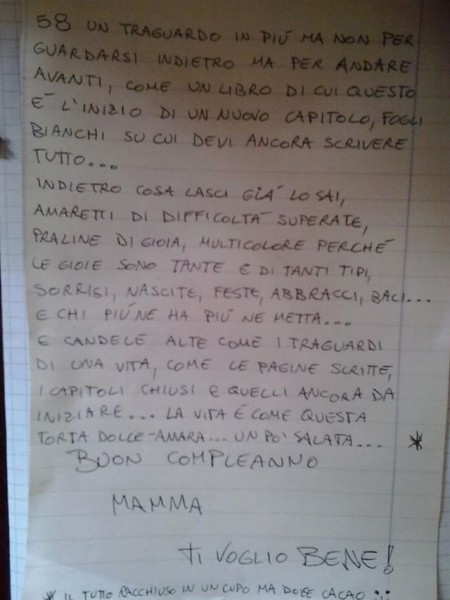 58 UN TRAGUARDO IN PIÚ MA NON PER
GUARDARSI INDIETRO MA PER ANDARE
AVANTI, COME UN LIBRO DI CUI QUESTO
É L'INIZIO DI UN NUOVO CAPITOLO, FOGLI
BIANCHI SU CUI DEVI ANCORA SCRIVERE
TUTTO...
INDIETRO COSA LASCI GIÁ LO SAI,
AMARETTI DI DIFFICOLTÁ SUPERATE,
PRALINE DI GIOIA, MULTICOLORE PERCHÉ
LE GIOIE SONO TANTE E DI TANTI TIPI,
SORRISI, NASCITE, FESTE, ABBRACCI, BACI...
E CHI PIÚ NE HA PIÚ NE METTA...
E CANDELE ALTE COME I TRAGUARDI
DI UNA VITA, COME LE PAGINE SCRITTE,
I CAPITOLI CHIUSI E QUELLI ANCORA DA
INIZIARE... LA VITA É COME QUESTA
TORTA DOLCE-AMARA... UN PO' SALATA... *
BUON COMPLEANNO
MAMMA
TI VOGLIO BENE!
* IL TUTTO RACCHIUSO IN UN CUPO MA DOLCE CACAO